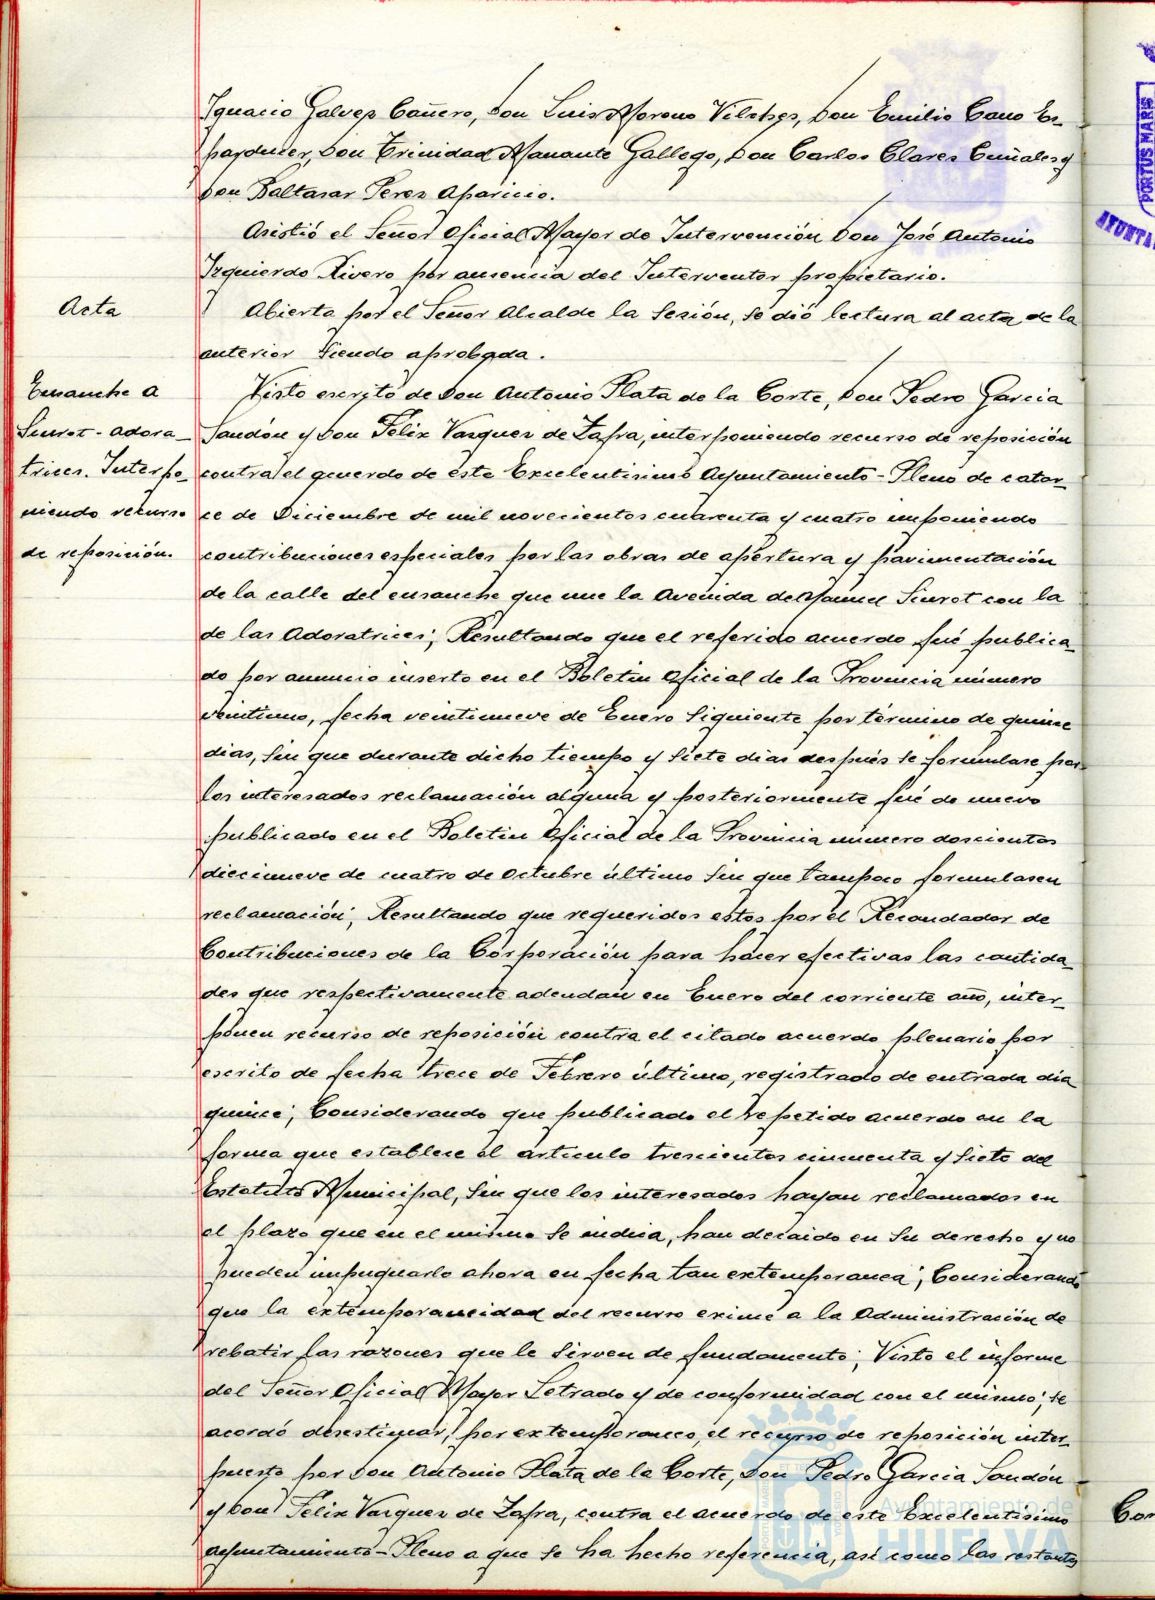 Ignacio Galvez Cañero, Don Luis Moreno Vilchez, Don Emilio Cano Es-
parducer, Don Trinidad Manante Gallego, Don Carlos Clares Cuñales y
Don Baltasar Perez Aparicio.
Asistió el Señor Oficial Mayor de Intervención Don José Antonio
Izquierdo Rivero por ausencia del Interventor propietario.
Acta
Abierta por el Señor Alcalde la Sesión, se dió lectura al acta de la
anterior siendo aprobada.
Ensanche a
Siurot-Adora-
trices. Interpo-
niendo recurso
de reposición.
Visto escrito de Don Antonio Plata de la Corte, Don Pedro Garcia
Sandón y Don Félix Vazquez de Zafra, interponiendo recurso de reposición
contra el acuerdo de este Excelentisimo Ayuntamiento-Pleno de cator-
ce de Diciembre de mil novecientos cuarenta y cuatro imponiendo
contribuciones especiales por las obras de apertura y pavimentación
de la calle del ensanche que une la Avenida de Manuel Siurot con la
de las Adoratrices; Resultando que el referido acuerdo fué publica-
do por anuncio inserto en el Boletin Oficial de la Provincia número
veintiuno, fecha veintinueve de Enero siguiente por término de quince
dias, sin que durante dicho tiempo y siete dias después se formulase por
los interesados reclamación alguna y posteriormente fué de nuevo
publicado en el Boletin Oficial de la Provincia número doscientos
diecinueve de cuatro de Octubre último sin que tampoco formulasen
reclamación; Resultando que requeridos estos por el Recaudador de
Contribuciones de la Corporación para hacer efectivas las cantida-
des que respectivamente adeudan en Enero del corriente año, inter-
ponen recurso de reposición contra el citado acuerdo plenario por
escrito de fecha trece de Febrero último, registrado de entrada dia
quince; Considerando que publicado el repetido acuerdo en la
forma que establece el artículo trescientos cincuenta y siete del
Estatuto Municipal, sin que los interesados hayan reclamados en
el plazo que en el mismo se indica, han decaido en su derecho y no
pueden impugnarlo ahora en fecha tan extemporanea; Considerando
que la extemporaneidad del recurso exime a la Administración de
rebatir las razones que le sirven de fundamento; Visto el informe
del Señor Oficial Mayor Letrado y de conformidad con el mismo; se
acordó desestimar, por extemporaneo, el recurso de reposición inter-
puesto por Don Antonio Plata de la Corte, Don Pedro Garcia Sandón
y Don Félix Vazquez de Zafra, contra el acuerdo de este Excelentisimo
Ayuntamiento-Pleno a que se ha hecho referencia, así como las restantes
PORTUS MARIS
AYUNTA
Con
Ayuntamiento de
HUELVA